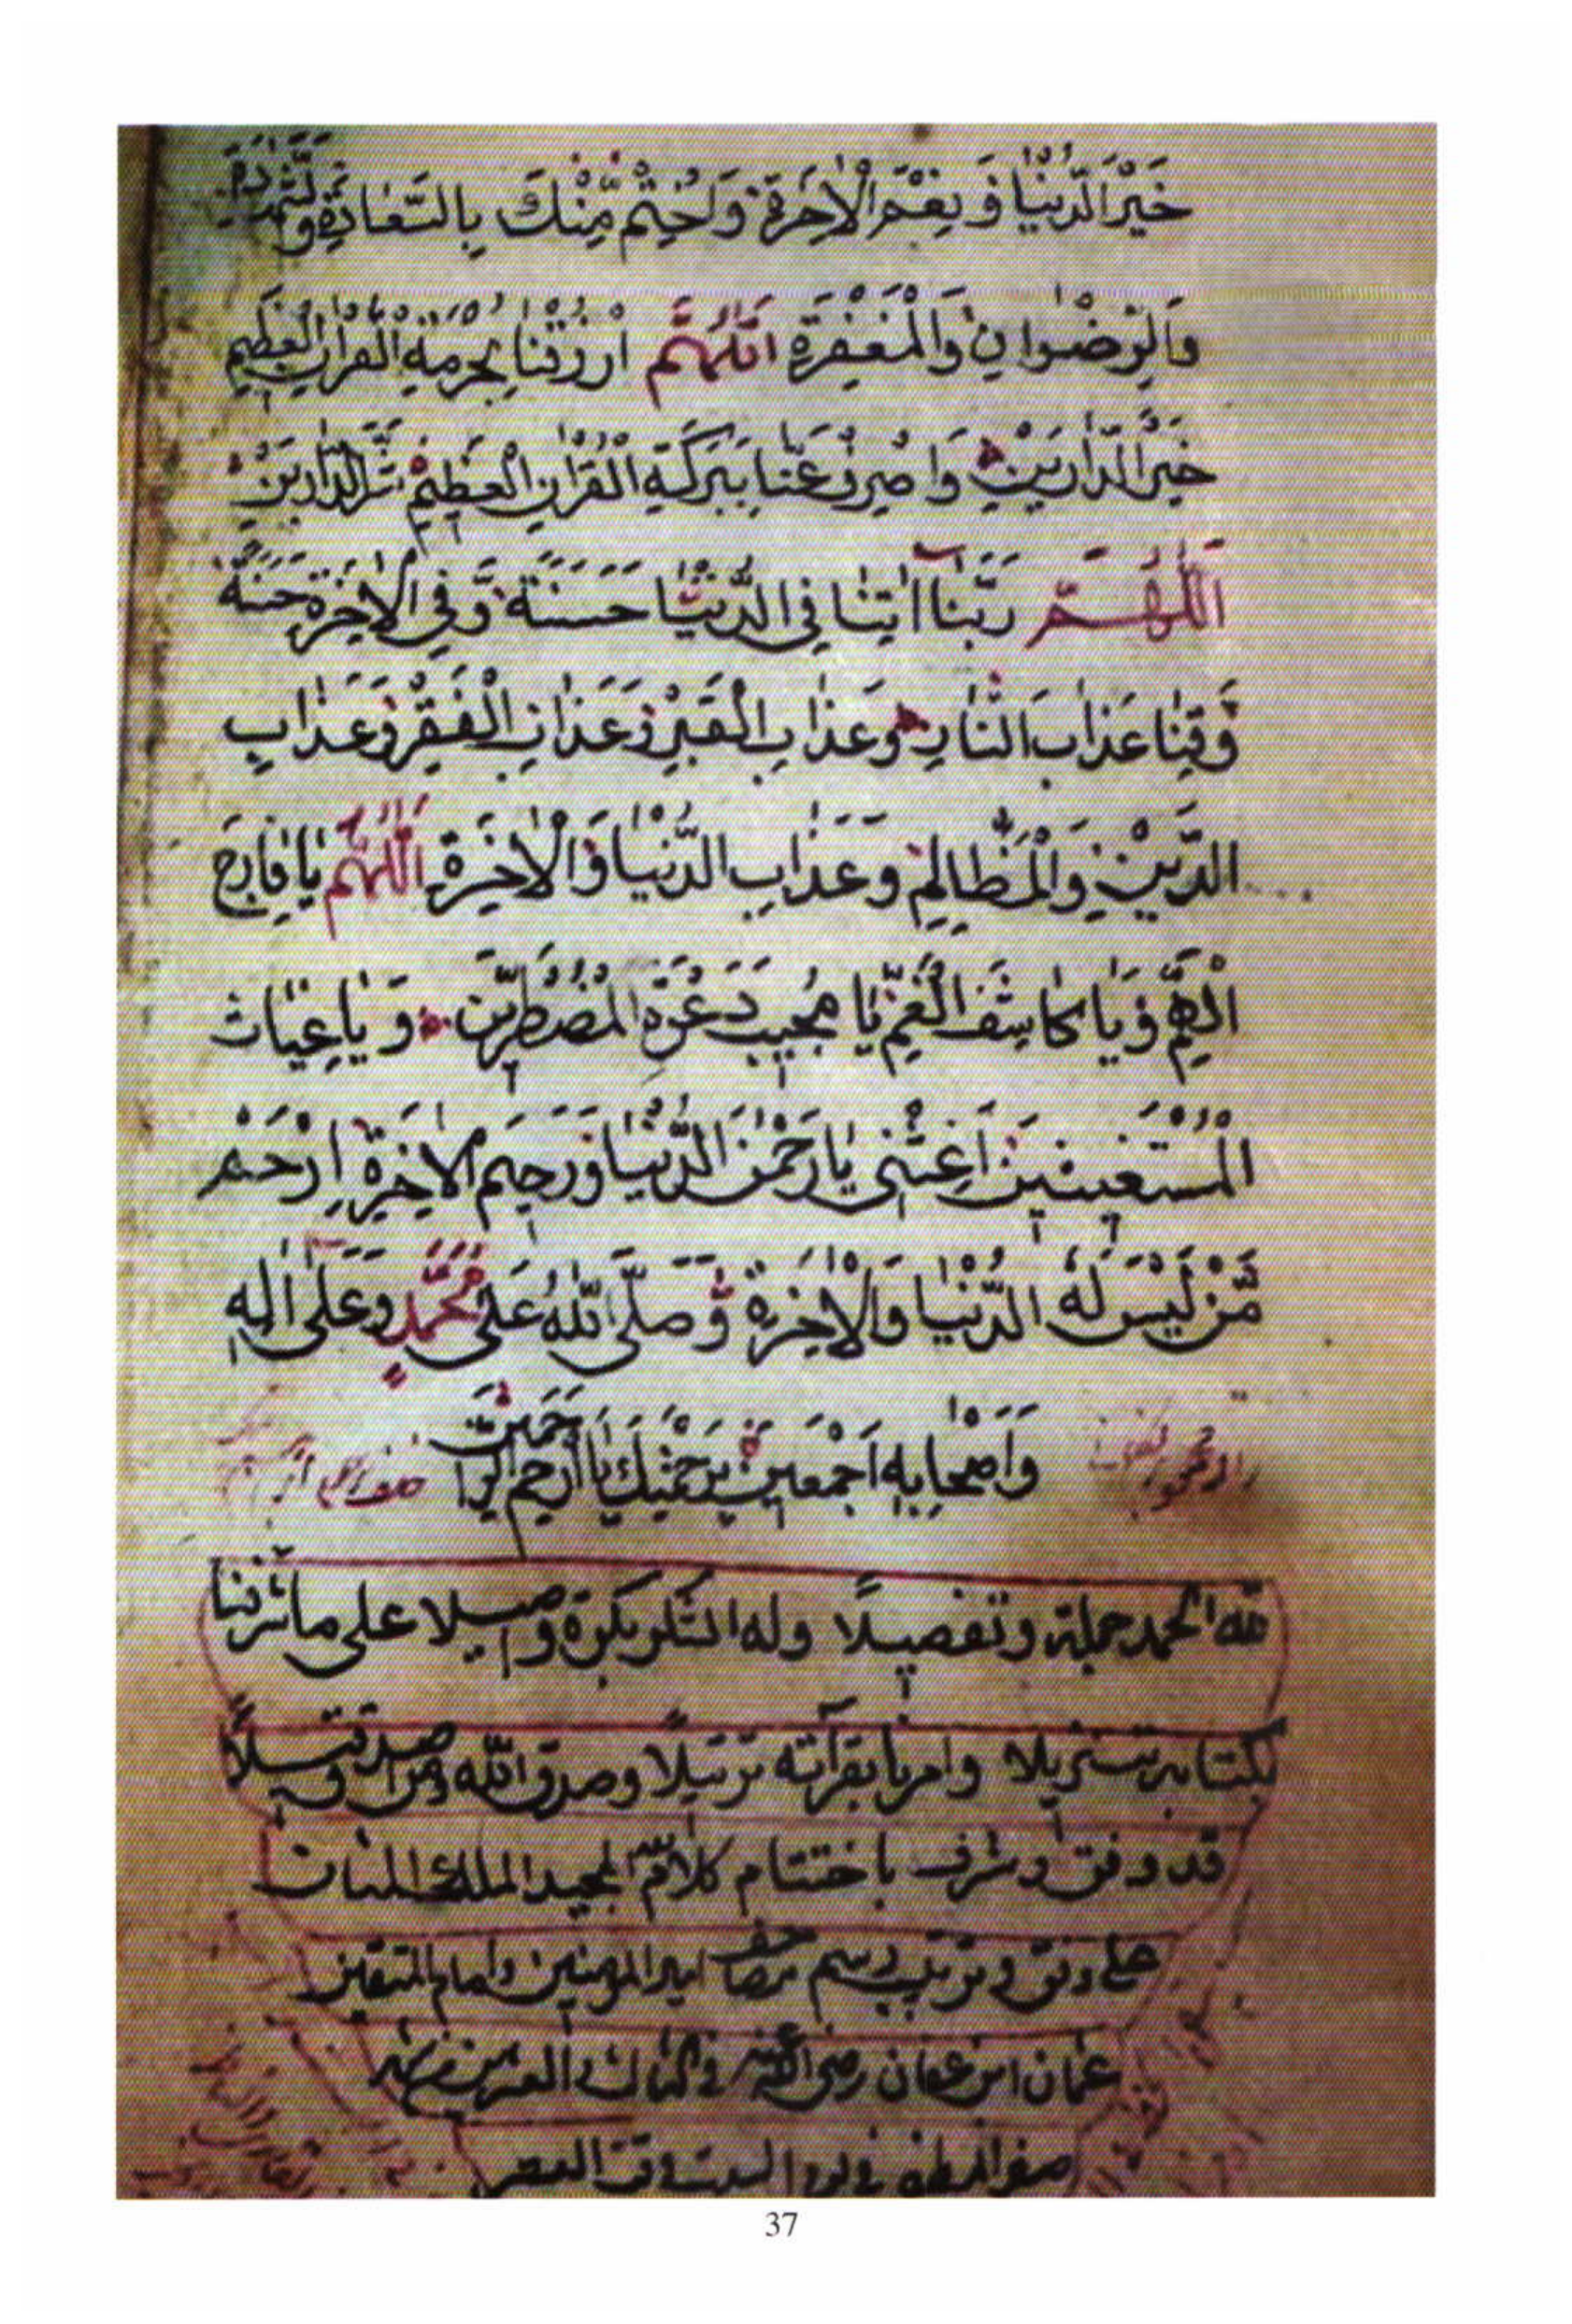 خَيْرَ الدُّنْيَا وَنِعَمَ الْاٰخِرَةِ وَاخْتِمْ مِّنْكَ بِالسَّعَادَةِ وَالشَّهَادَةِ
وَالرِّضْوَانِ وَالْمَغْفِرَةِ اَللّٰهُمَّ ارْزُقْنَا بِحُرْمَةِ الْقُرْاٰنِ الْعَظِيْمِ
خَيْرَ الدَّارَيْنِ وَاصْرِفْ عَنَّا بِبَرَكَةِ الْقُرْاٰنِ الْعَظِيْمِ شَرَّ الدَّارَيْنِ
اَللّٰهُمَّ رَبَّنَا اٰتِنَا فِي الدُّنْيَا حَسَنَةً وَّفِي الْاٰخِرَةِ حَسَنَةً
وَّقِنَا عَذَابَ النَّارِ وَعَذَابِ الْقَبْرِ وَعَذَابِ الْفَقْرِ وَعَذَابِ
الدَّيْنِ وَالْمَظَالِمِ وَعَذَابِ الدُّنْيَا وَالْاٰخِرَةِ اَللّٰهُمَّ يَا فَارِجَ
الْهَمِّ وَيَا كَاشِفَ الْغَمِّ يَا مُجِيْبَ دَعْوَةِ الْمُضْطَرِّيْنَ وَيَا غِيَاثَ
الْمُسْتَغِيْثِيْنَ اَغِثْنِيْ يَا رَحْمٰنَ الدُّنْيَا وَرَحِيْمَ الْاٰخِرَةِ اِرْحَمْ
مَّنْ لَيْسَ لَهُ الدُّنْيَا وَالْاٰخِرَةُ وَصَلَّى اللّٰهُ عَلٰى مُحَمَّدٍ وَعَلٰى اٰلِهِ
وَاَصْحَابِهِ اَجْمَعِيْنَ بِرَحْمَتِكَ يَا اَرْحَمَ الرَّاحِمِيْنَ
لله الحمد جملة وتفصيلًا وله الشكر بكرة واصيلا على ما شرفنا
بكتابه تنزيلا وامرنا بقرآته ترتيلًا وصدق الله ومن اصدق قيلًا
قد وفق وشرف باختتام كلام المجيد الملك المنان
على وفق وترتيب رسم مصاحف امير المؤمنين وامام المتقين
عثمان ابن عفان رضى الله عنه في
صفر المظفر في يوم السبت في وقت العصر
37